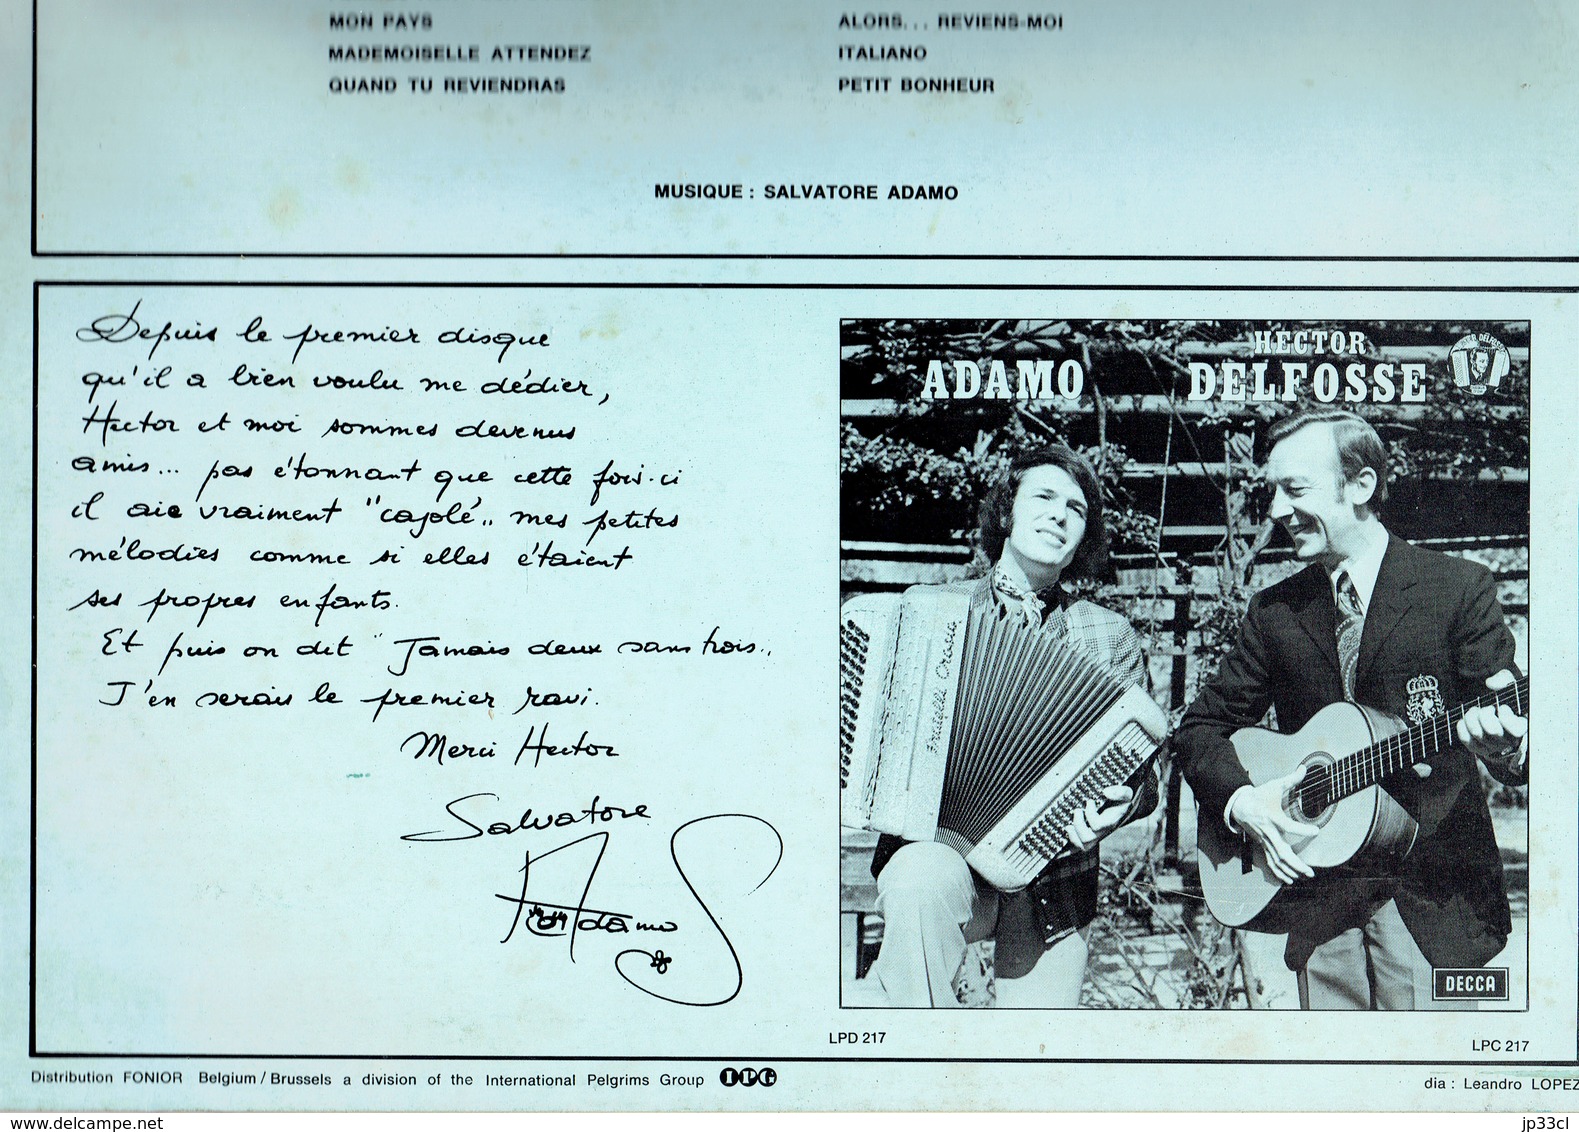 MON PAYS
MADEMOISELLE ATTENDEZ
QUAND TU REVIENDRAS
ALORS... REVIENS-MOI
ITALIANO
PETIT BONHEUR
MUSIQUE : SALVATORE ADAMO
Depuis le premier disque
qu'il a bien voulu me dédier,
Hector et moi sommes devenus
amis... pas étonnant que cette fois-ci
il aie vraiment "cajolé" mes petites
mélodies comme si elles étaient
ses propres enfants.
Et puis on dit "Jamais deux sans trois"
J'en serais le premier ravi.
Merci Hector
Salvatore
Adamo
ADAMO
HECTOR
DELFOSSE
HECTOR DELFOSSE
Fratelli Crosio
DECCA
LPD 217
LPC 217
Distribution FONIOR Belgium / Brussels a division of the International Pelgrims Group IPG
dia : Leandro LOPEZ
www.delcampe.net
jp33cl